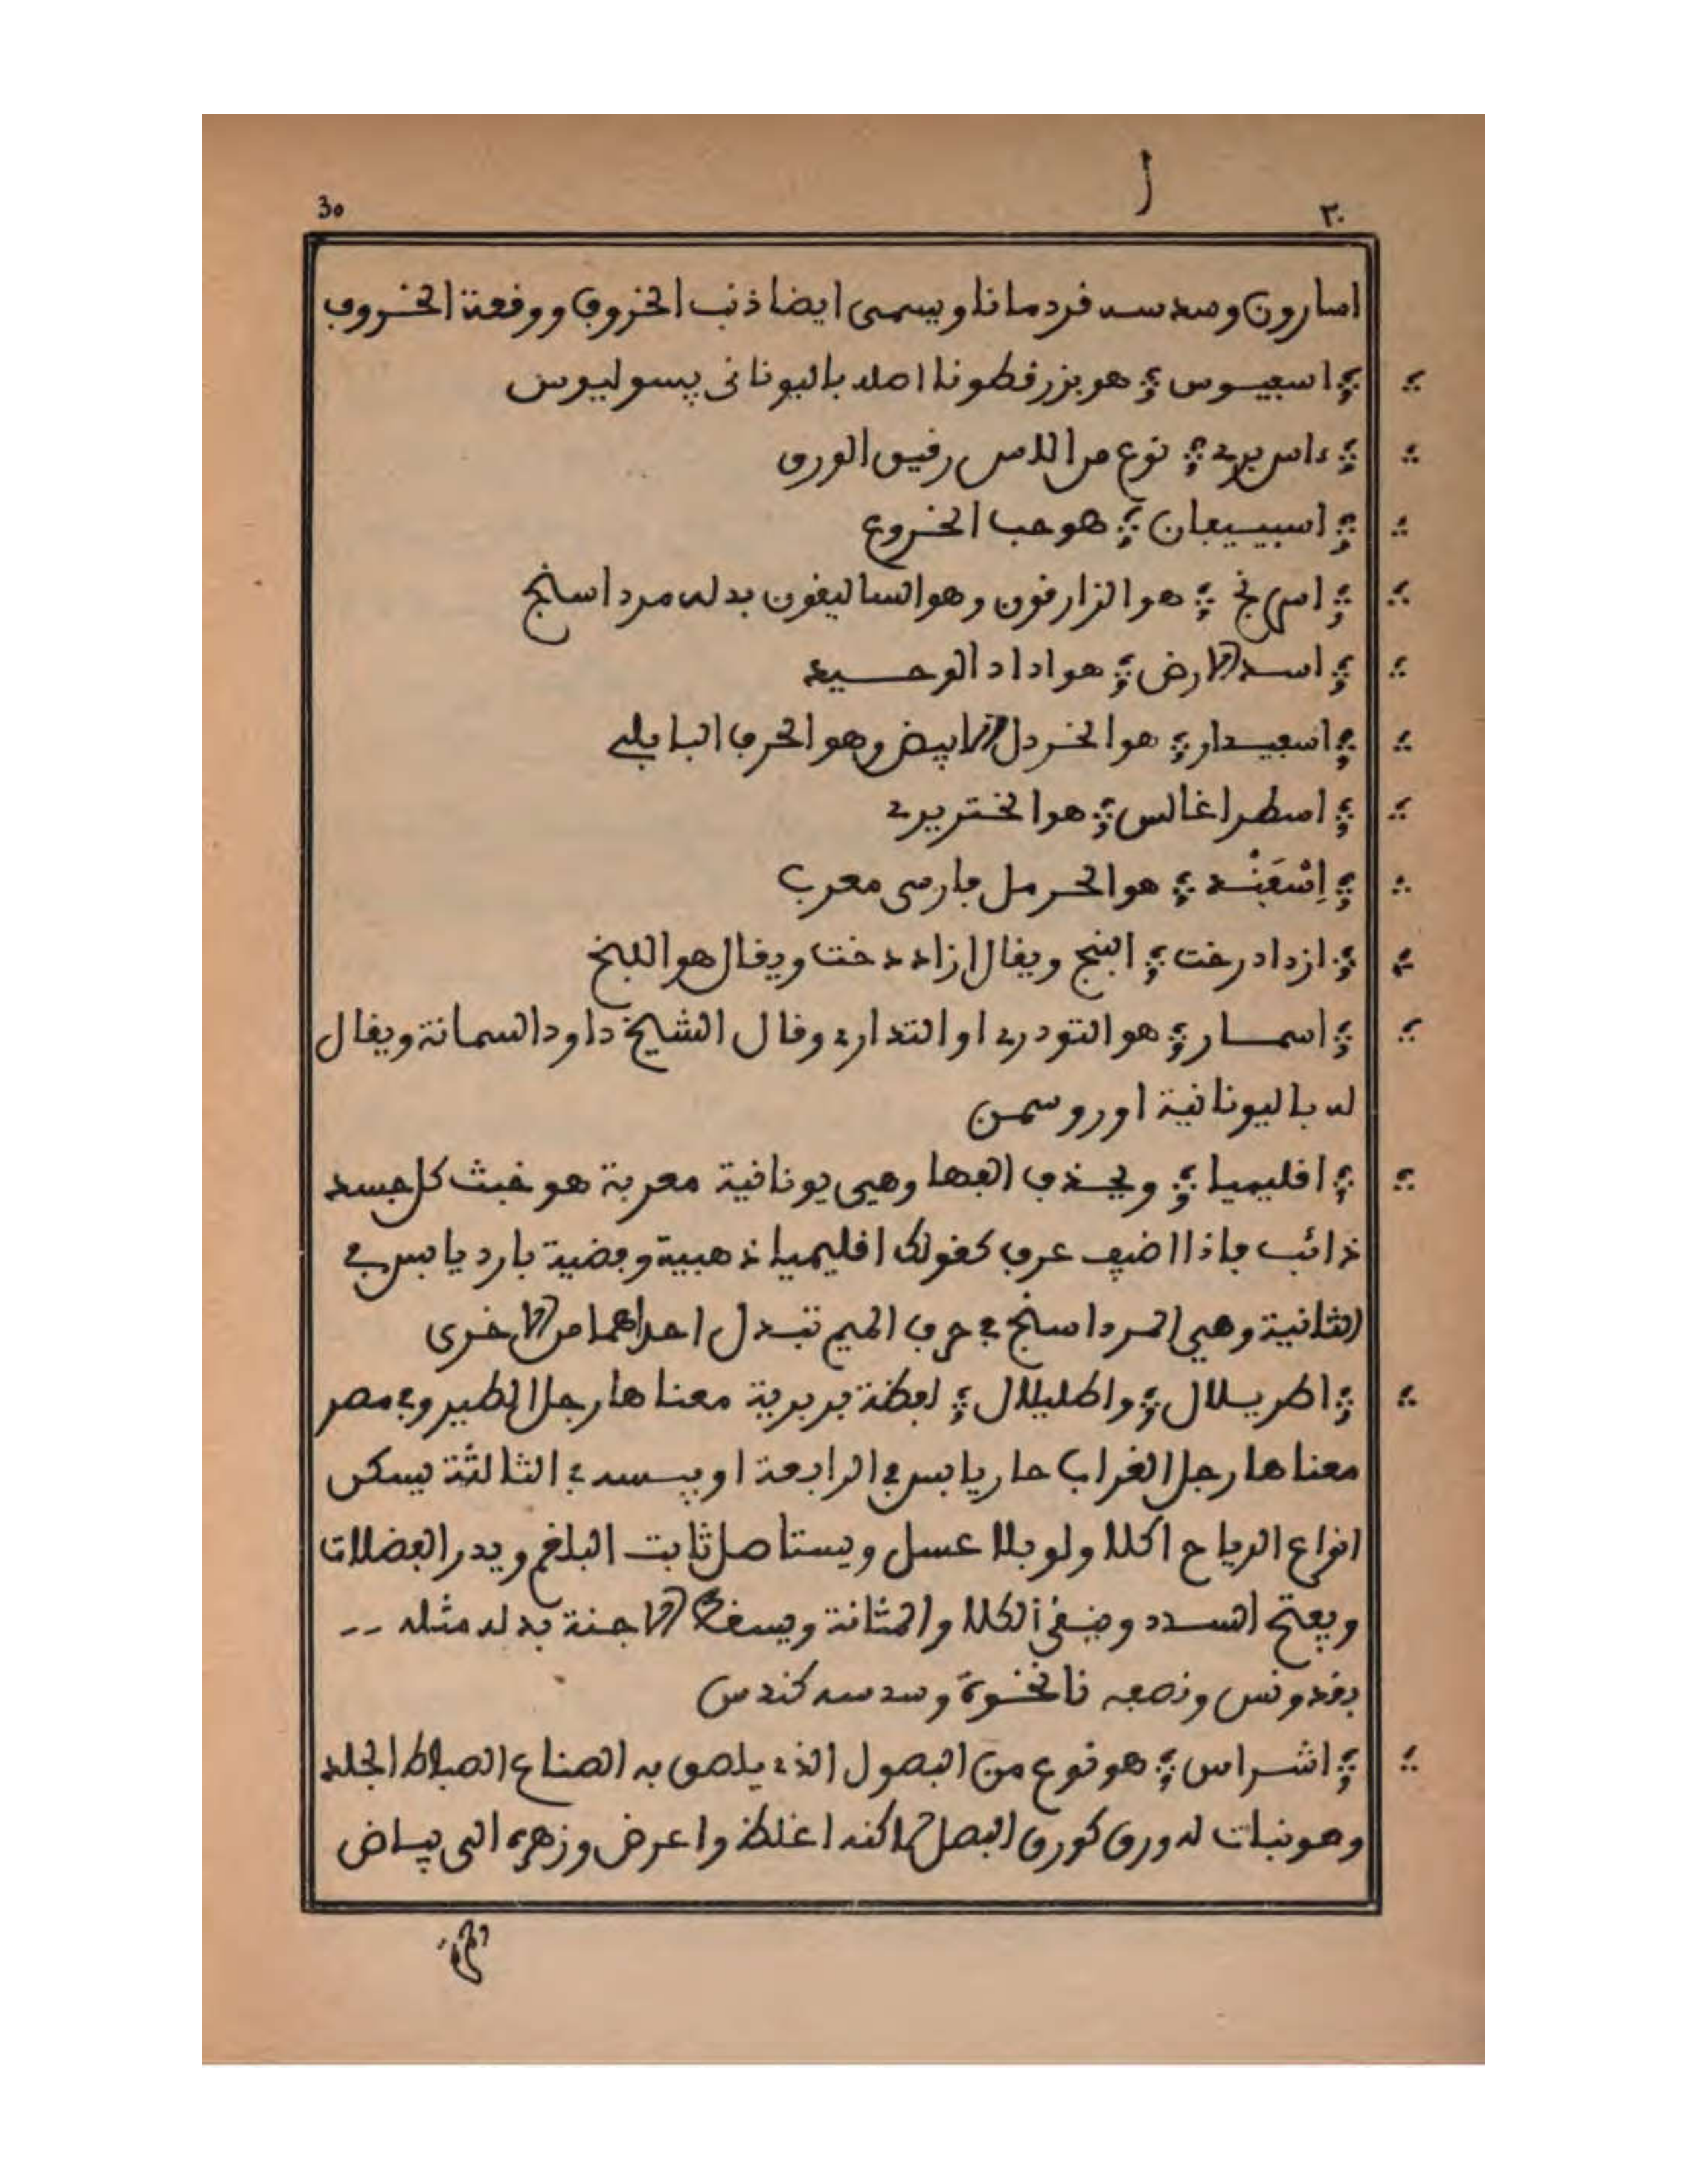 30 ا ٣٠
اسارون وسدسه قردمانا ويسمى ايضا ذنب الخروف ووقعة الخروف
اسفيوس هو بزر قطونا اصله باليوناني پسوليوس
ءاس برى نوع من الاس رقيق الورق
اسبيبان هو حب الخروع
اسرنج هو الزارقون وهو الساليقون بدله مرداسنج
اسد الارض هو اداد الوحسيه
اسفيدار هو الخردل الابيض وهو الحرف البابلي
اسطراغالس هو الخنزيرى
اِسْفَنْد هو الحرمل فارسى معرب
ازدادرخت البنج ويقال ازاددخت ويقال هو اللبخ
اسمار هو التودرى او التدارى وقال الشيخ داود السمانة ويقال
له باليونانية اوروسمن
اقليميا ويحذف الفها وهي يونانية معربة هو خبث كل جسد
ذائب فاذا اضيف عرف كقولك اقليميا ذهبية وفضية بارد يابس في
الثانية وهي المرداسنج في حرف الميم تبدل احداهما من الاخرى
اطريلال واطليلال لفظة بربرية معناها رجل الطير وفي مصر
معناها رجل الغراب حار يابس في الرابعة او يبسه في الثالثة يسكن
انواع الرياح اكلا ولو بلا عسل ويستاصل ثابت البلغم ويدر الفضلات
ويفتح السدد وينقي الكلا والمثانة ويسقط الاجنة بدله مثله --
بقدونس ونصفه نانخوة وسدسه كندس
اشراس هو نوع من البصول الذي يلصق به الصناع الصباط الجلد
وهو نبات له ورق كورق البصل لاكنه اغلظ واعرض وزهره الى بياض